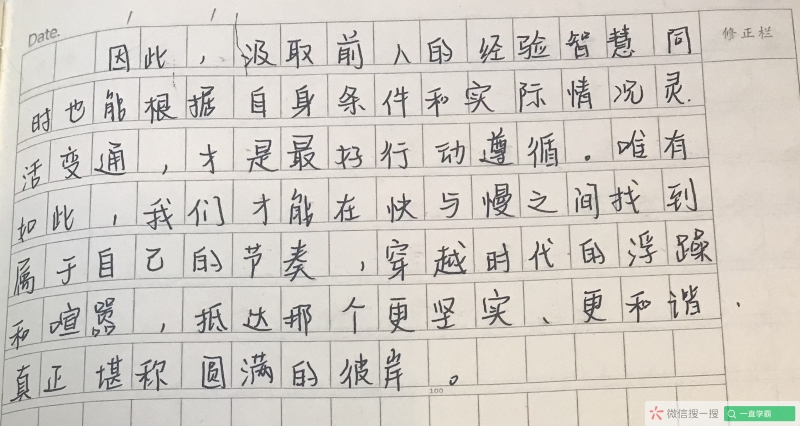 Date.
修正栏
因此，汲取前人的经验智慧同
时也能根据自身条件和实际情况灵
活变通，才是最好行动遵循。唯有
如此，我们才能在快与慢之间找到
属于自己的节奏，穿越时代的浮躁
和喧嚣，抵达那个更坚实、更和谐.
真正堪称圆满的彼岸。
100
微信搜一搜 一直学霸